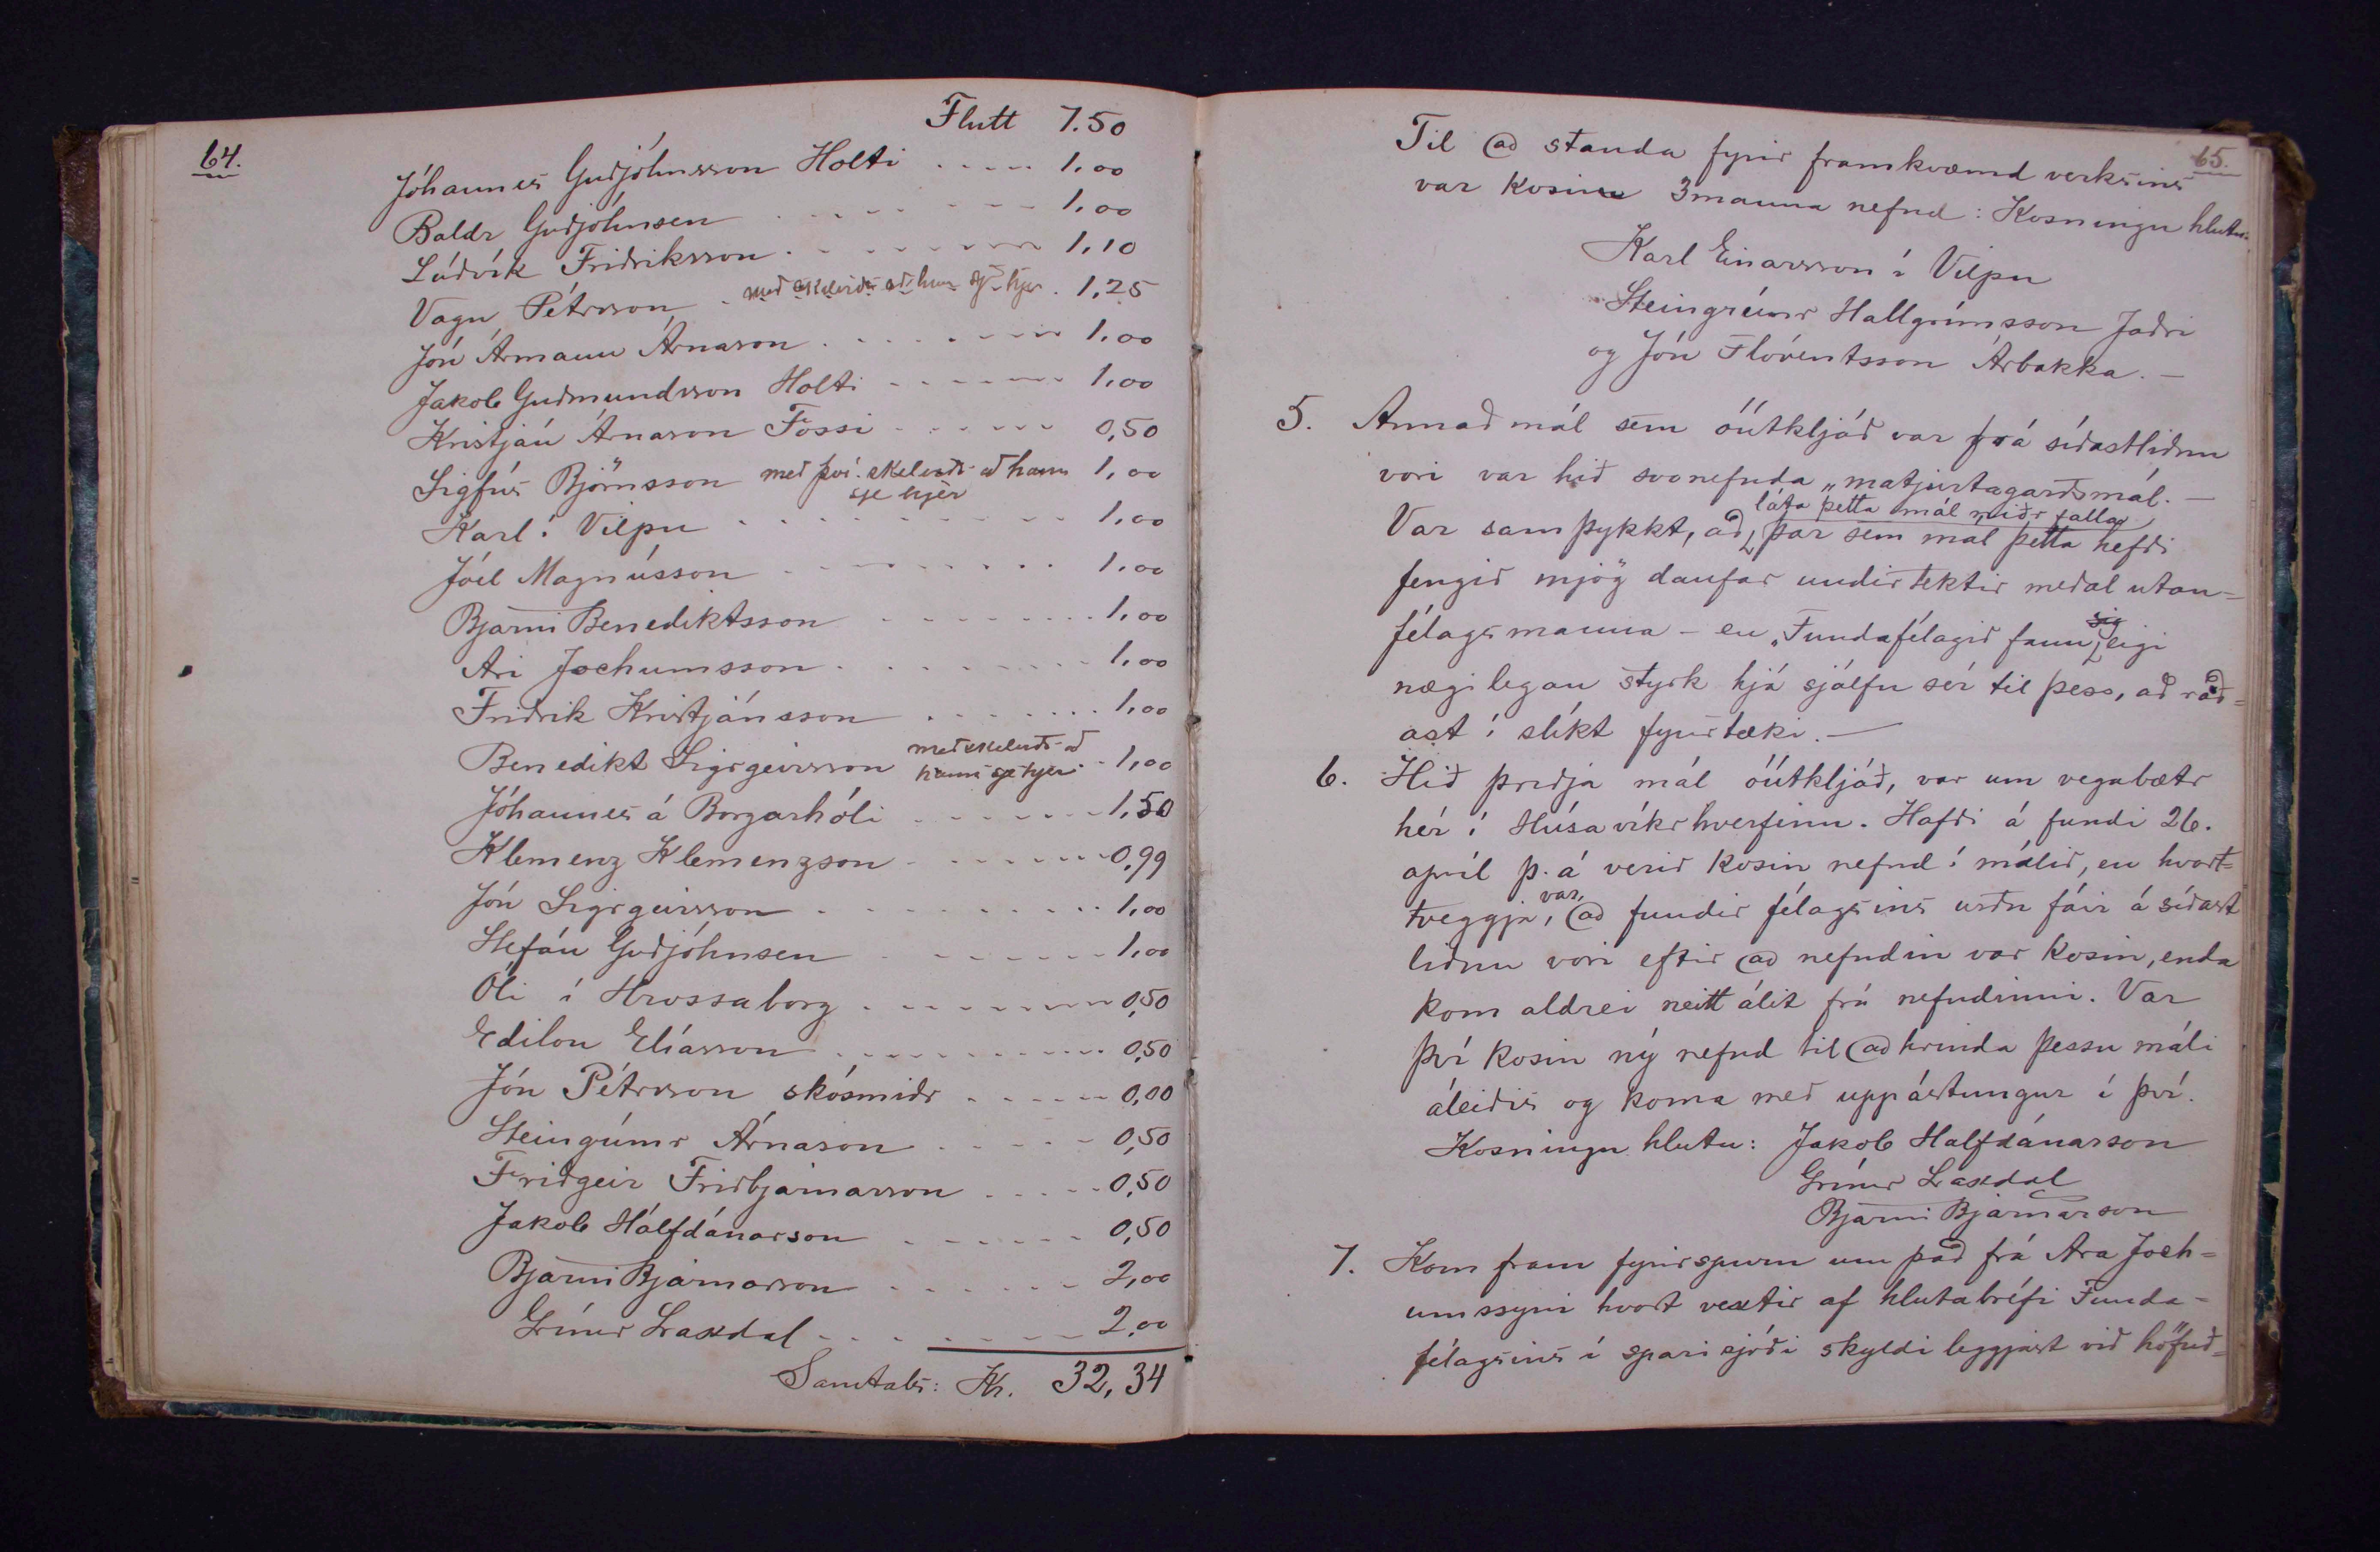 64.
Flutt 7.50
Jóhannes Guðjóhnsson Holti ..... 1,00
Baldr Guðjóhnsen ....... 1,00
Lúðvík Friðriksson ....... 1,10
Vagn Pétrsson . með skilirði að hann sje hjer . 1,25
Jón Ármann Árnason ....... 1,00
Jakob Guðmundsson Holti ....... 1,00
Kristján Árnason Fossi ...... 0,50
Sigfús Björnsson með því skilirði að hann sje hjer 1,00
Karl í Vilpu .......... 1,00
Jóel Magnússon ......... 1,00
Bjarni Benediktsson ......... 1,00
Ari Jochumsson ......... 1,00
Friðrik Kristjánsson ....... 1,00
Benedikt Sigrgeirsson með skilirði að hann sje hjer . 1,00
Jóhannes á Borgarhóli ....... 1,50
Klemenz Klemenzson ....... 0,99
Jón Sigrgeirsson .......... 1,00
Stefán Guðjóhnsen ....... 1,00
Óli í Hrossaborg ........ 0,50
Edilon Elíasson ........... 0,50
Jón Pétrsson skósmiðr ...... 0,00
Steingrímr Árnason ..... 0,50
Friðgeir Friðbjarnarson ..... 0,50
Jakob Hálfdánarson ...... 0,50
Bjarni Bjarnarson ...... 2,00
Grímr Laxdal ........ 2,00
Samtals: Kr. 32,34
65.
Til að standa fyrir framkvæmd verksins
var kosin 3manna nefnd: Kosningu hlutu:
Karl Einarsson í Vilpu
Steingrímr Hallgrímsson Jaðri
og Jón Flóventsson Árbakka. –
5. Annað mál sem óútkljáð var frá síðastliðnu
vori var hið svonefnda „matjurtagarðsmál. –
láta þetta mál niðr falla
Var samþykkt, að, þar sem mál þetta hefði
fengið mjög daufar undirtektir meðal utan-
félagsmanna – en „Fundafélagið fann sig eigi
nægilegan styrk hjá sjálfu sér til þess, að ráð-
ast í slíkt fyrirtæki. –
6. Hið þriðja mál óútkljáð, var um vegabætr
hér í Húsavíkrhverfinu. Hafði á fundi 26.
apríl þ.á verið kosin nefnd í málið, en hvort-
tveggja var, að fundir félagsins urðu fáir á síðast
liðnu vori eftir að nefndin var kosin, enda
kom aldrei neitt álit frá nefndinni. Var
því kosin ný nefnd til að hrinda þessu máli
áleiðis og koma með uppástungur í því.
Kosningu hlutu: Jakob Halfdánarson
Grímr Laxdal
Bjarni Bjarnarson
7. Kom fram fyrirspurn um það frá Ara Joch-
umssyni hvort vextir af hlutabréfi Funda-
félagsins í sparisjóði skyldi leggjast við höfuð-